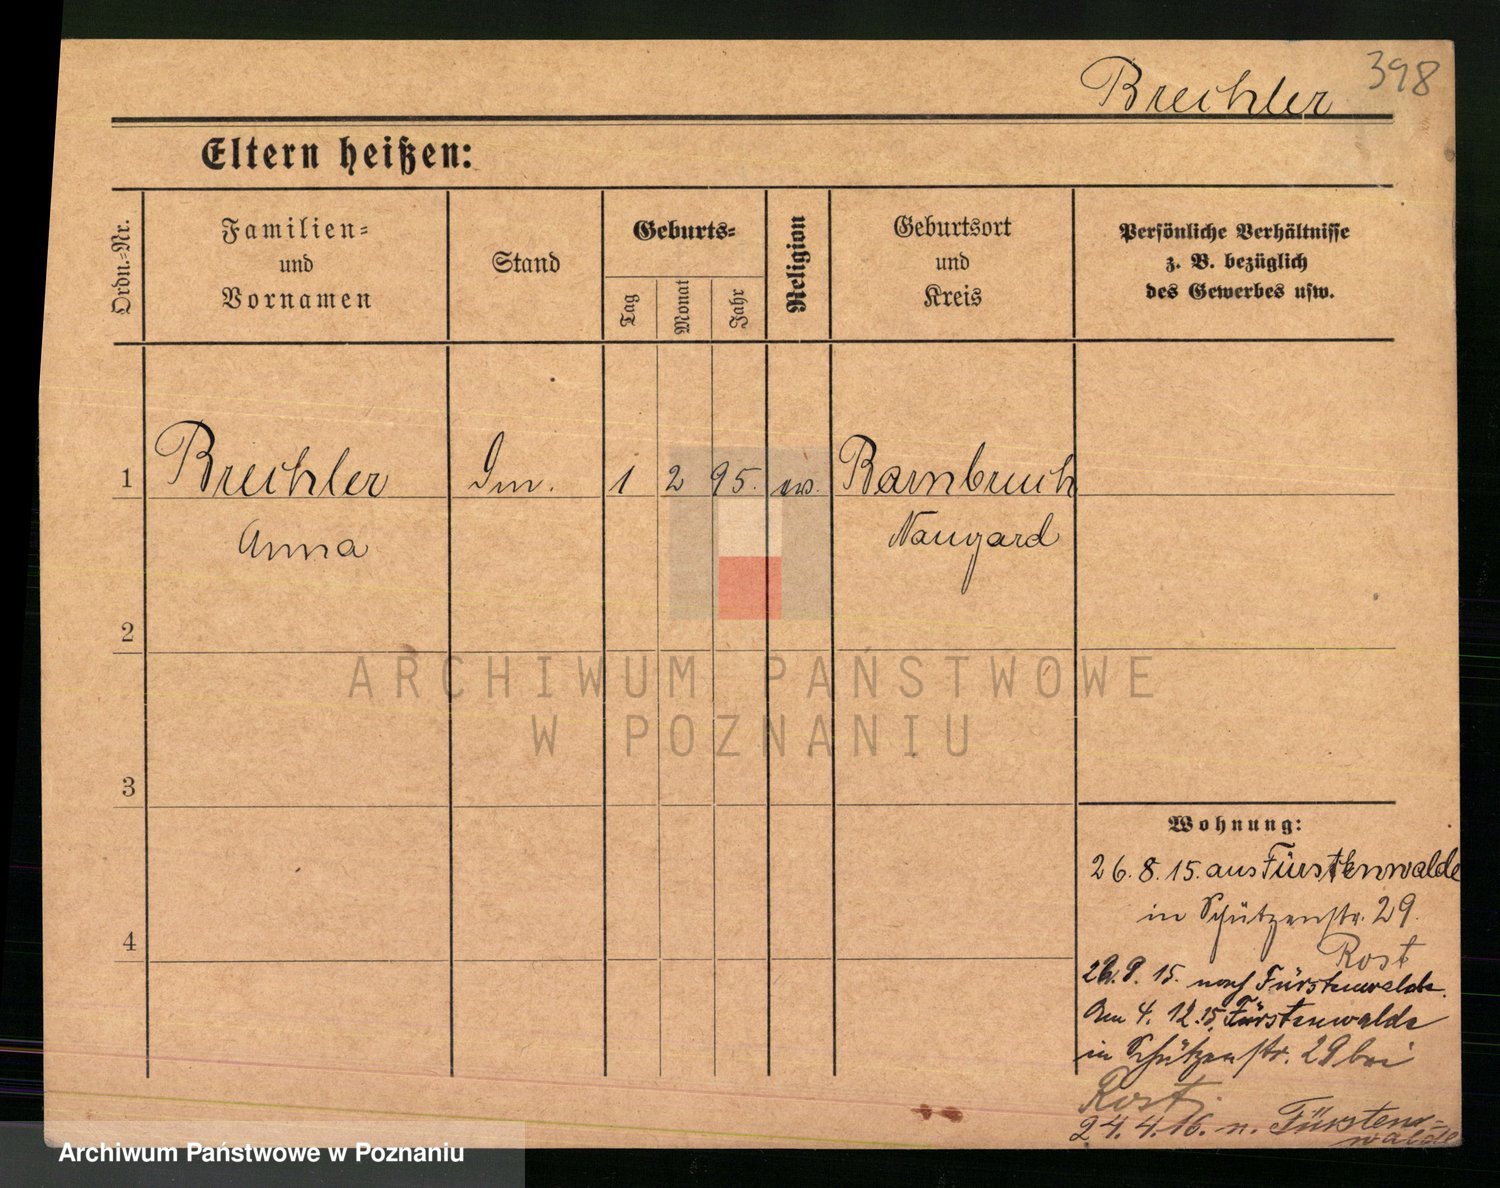 398
Brechler
Eltern heißen:
Ordn.-Nr.
Familien-
und
Vornamen
Stand
Geburts-
Tag
Monat
Jahr
Religion
Geburtsort
und
Kreis
Persönliche Verhältnisse
z. B. bezüglich
des Gewerbes usw.
1 Brechler 1 2 95. ev. Barnbruch
Anna Naugard
2
3
4
Wohnung:
26. 8. 15. aus Fürstenwalde
in Schützenstr. 29.
Rost
9. 15. nach Fürstenwalde.
Am 4. 12. 15. Fürstenwalde
in Schützenstr. 29 bei
Rost
24. 4. 16. n. Fürsten-
walde
ARCHIWUM PAŃSTWOWE
W POZNANIU
Archiwum Państwowe w Poznaniu